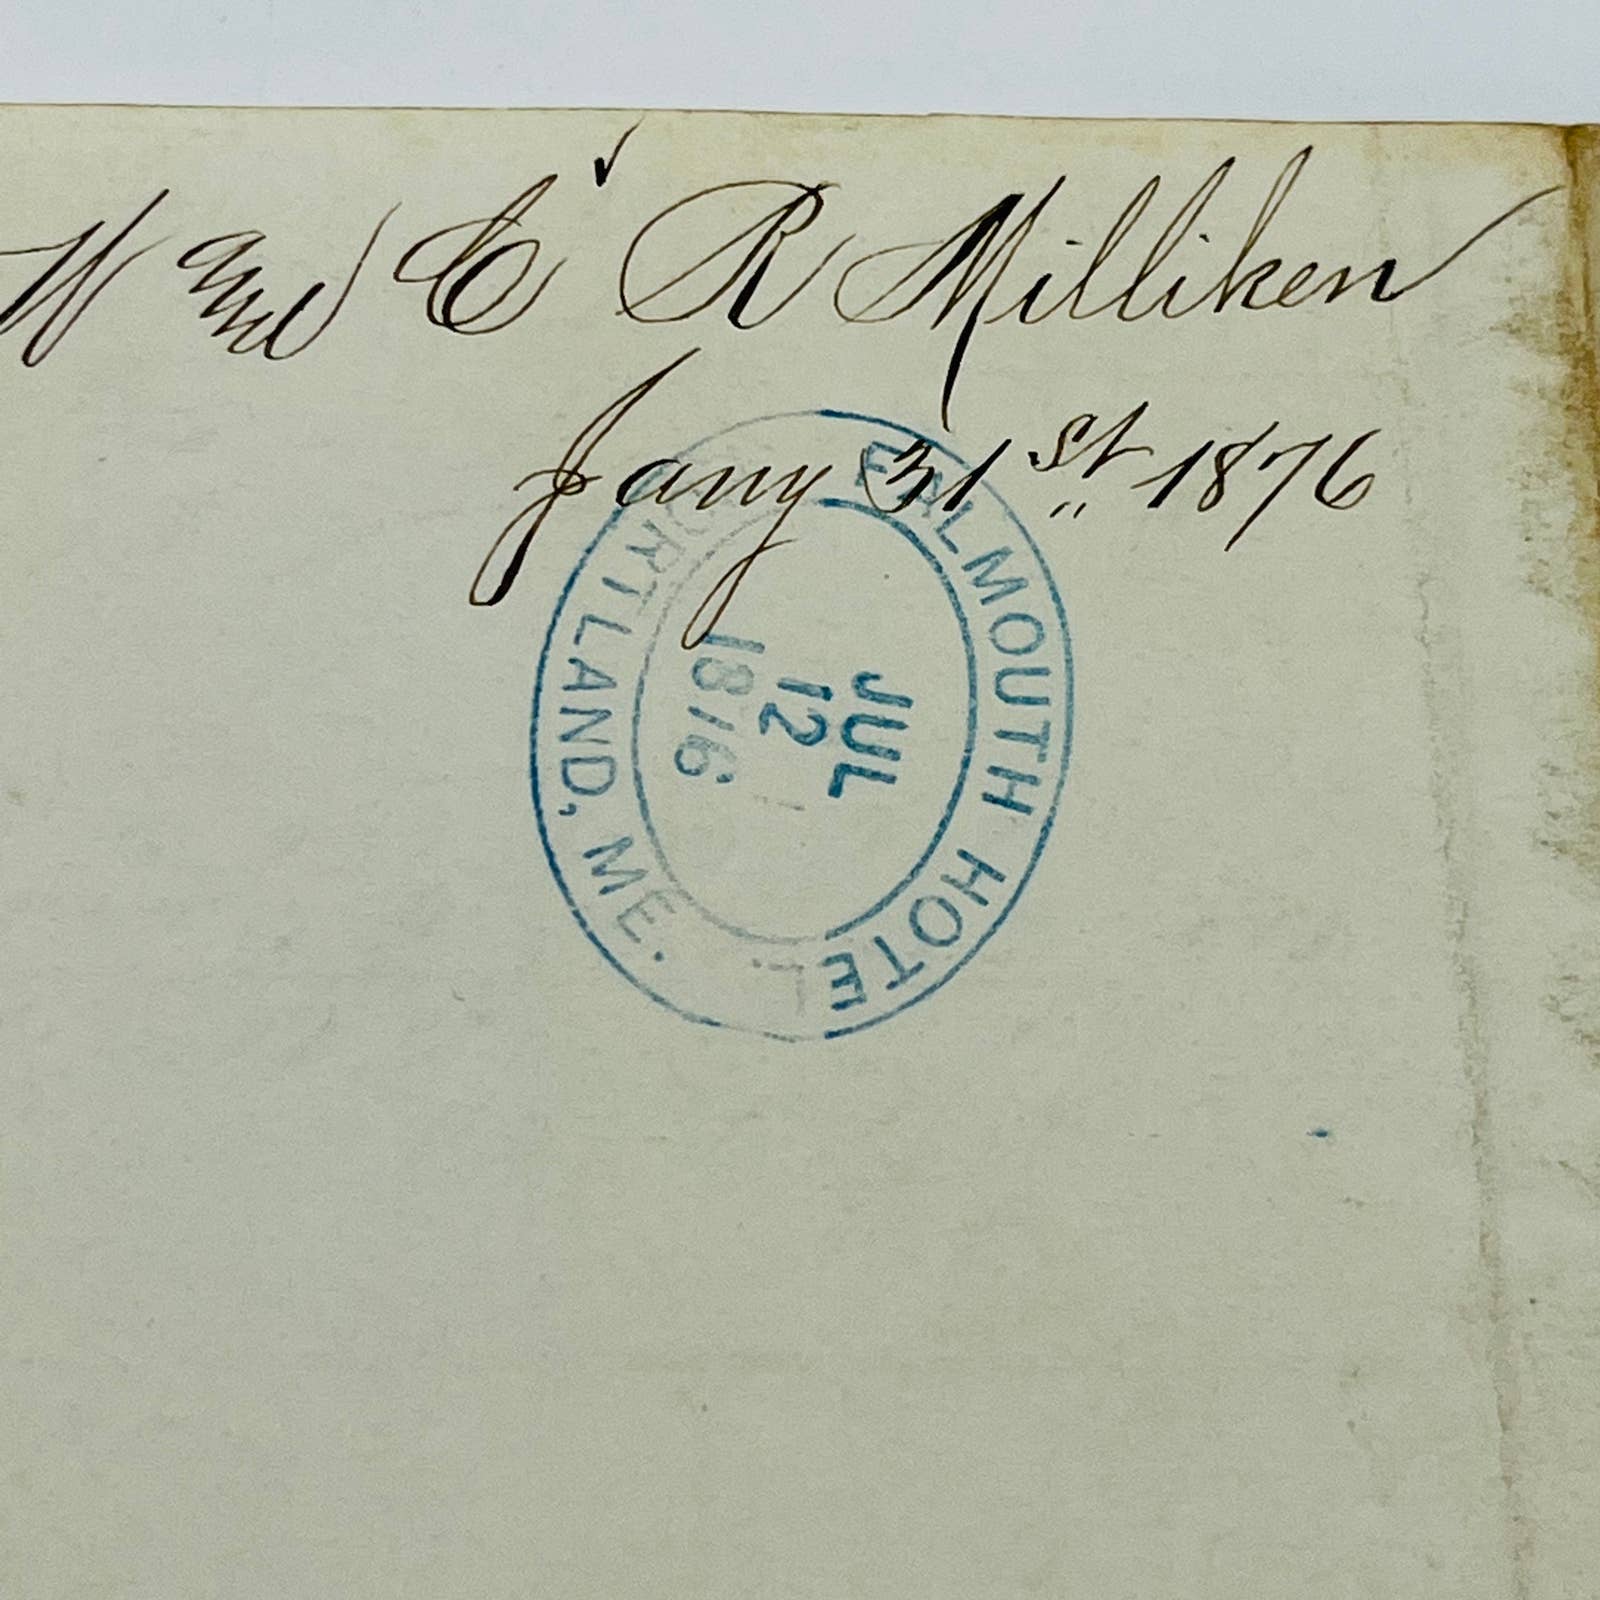 W and C R Milliken
Jany 31st 1876
FALMOUTH HOTEL
JUL
12
1876
PORTLAND, ME.